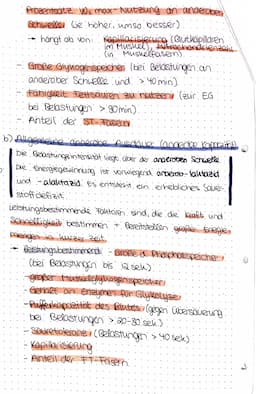 Prozentsatz VO₂ max - Nutzung an anaerober
Schwelle (je höher, umso besser)
→ hängt ab von: Kapillarisierung (Blutkapillaren
im Muskel), Mitochondrienzahl
(in Muskelfasern)
- Große Glykogenspeicher (bei Belastungen an
anaerober Schwelle und > 40min)
- Fähigkeit Fettsäuren zu nutzen (zur EG
bei Belastungen > 90min)
- Anteil der ST-Fasern
b) Allgemeine anaerobe Ausdauer (anaerobe Kapazität)
Die Belastungsintensität liegt über der anaeroben Schwelle
Die Energiegewinnung ist vorwiegend anaerob-laktazid
und -alaktazid. Es entsteht ein erhebliches Sauer-
stoffdefizit.
Leistungsbestimmende Faktoren sind, die die Kraft und
Schnelligkeit bestimmen + Bereitstellen große Energie-
mengen in kurzer Zeit
→ leistungsbestimmend: - Große Phosphatspeicher
(bei Belastungen bis 12 sek)
- großer Muskelglykogenspeicher
- Gehalt an Enzymen für Glykolyse
- Pufferkapazität des Blutes (gegen Übersäuerung
bei Belastungen > 20-30 sek)
- Säuretoleranz (Belastungen > 40 sek)
- Kapillarisierung
- Anteil der FT-Fasern